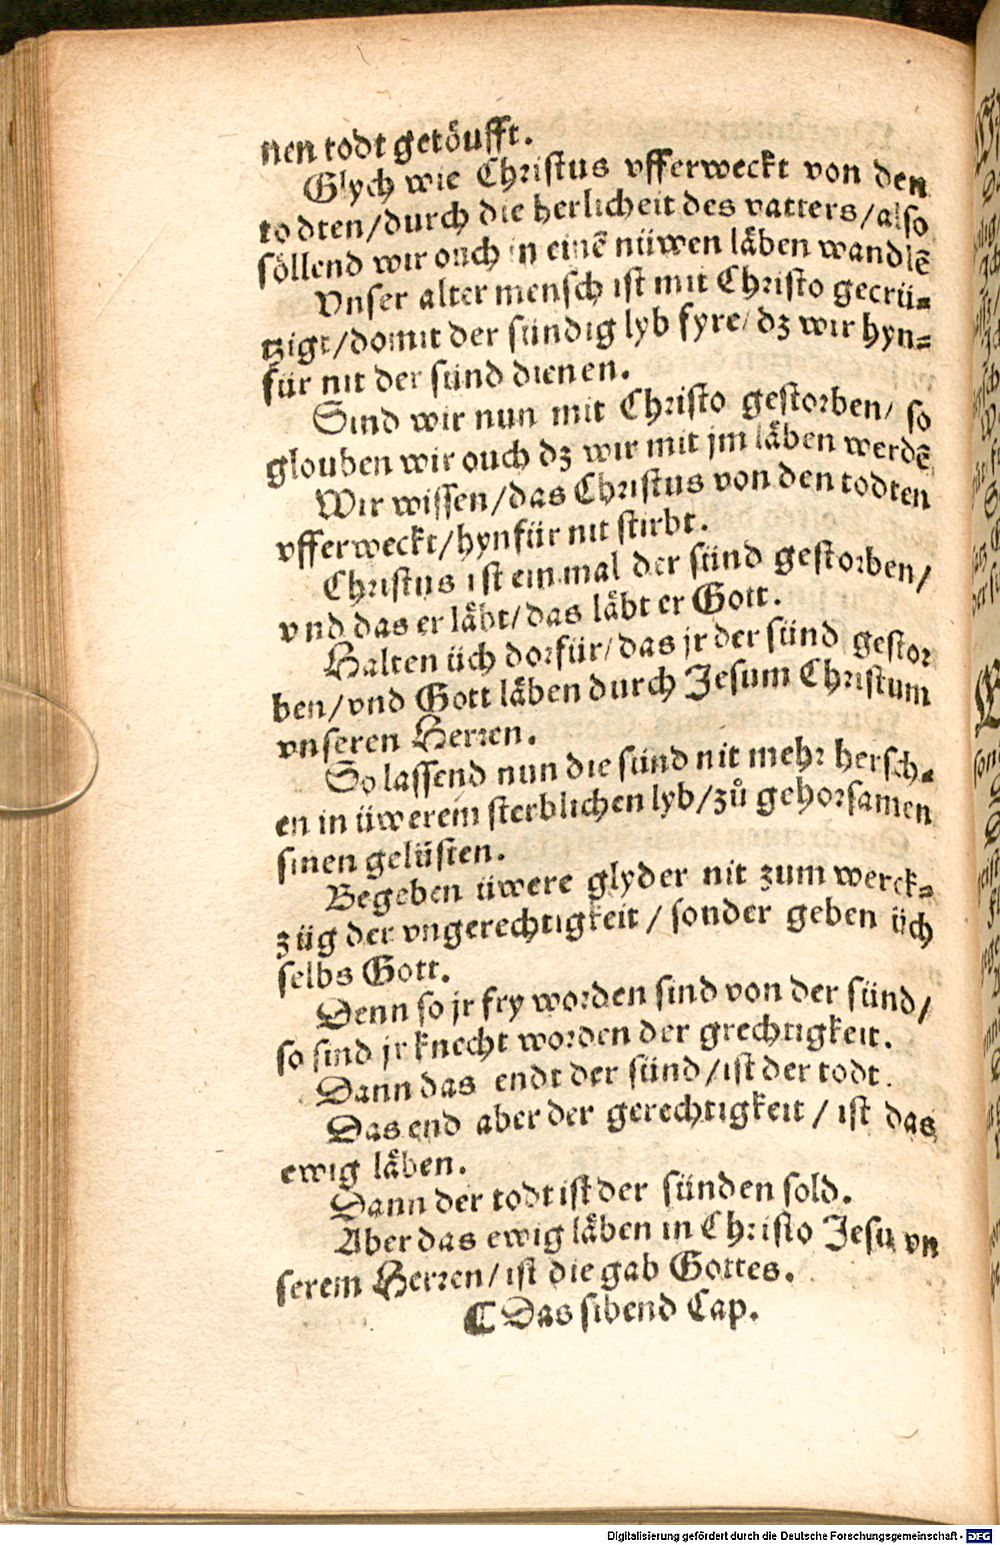 nen todt getöufft.
Glych wie Christus vfferweckt von den
todten/durch die herlicheit des vatters/also
söllend wir ouch in einē nüwen läben wandlē
Vnser alter mensch ist mit Christo gecrü⸗
tzigt/domit der sündig lyb fyre/ dz wir hyn⸗
für nit der sünd dienen.
Sind wir nun mit Christo gestorben/ so
glouben wir ouch dz wir mit jm läben werdē
Wir wissen/das Christus von den todten
vfferweckt/hynfür nit stirbt.
Christus ist ein mal der sünd gestorben/
vnd das er läbt/das läbt er Gott.
Halten üch dorfür/das jr der sünd gestor
ben/vnd Gott läben durch Jesum Christum
vnseren Herren.
So lassend nun die sünd nit mehr hersch⸗
en in üwerem sterblichen lyb/zů gehorsamen
sinen gelüsten.
Begeben üwere glyder nit zum werck⸗
züg der vngerechtigkeit / sonder geben üch
selbs Gott.
Denn so jr fry worden sind von der sünd/
so sind jr knecht worden der grechtigkeit.
Dann das endt der sünd/ist der todt.
Das end aber der gerechtigkeit / ist das
ewig läben.
Dann der todt ist der sünden sold.
Aber das ewig läben in Christo Jesu vn
serem Herren/ist die gab Gottes.
☾ Das sibend Cap.
Digitalisierung gefördert durch die Deutsche Forschungsgemeinschaft - DFG